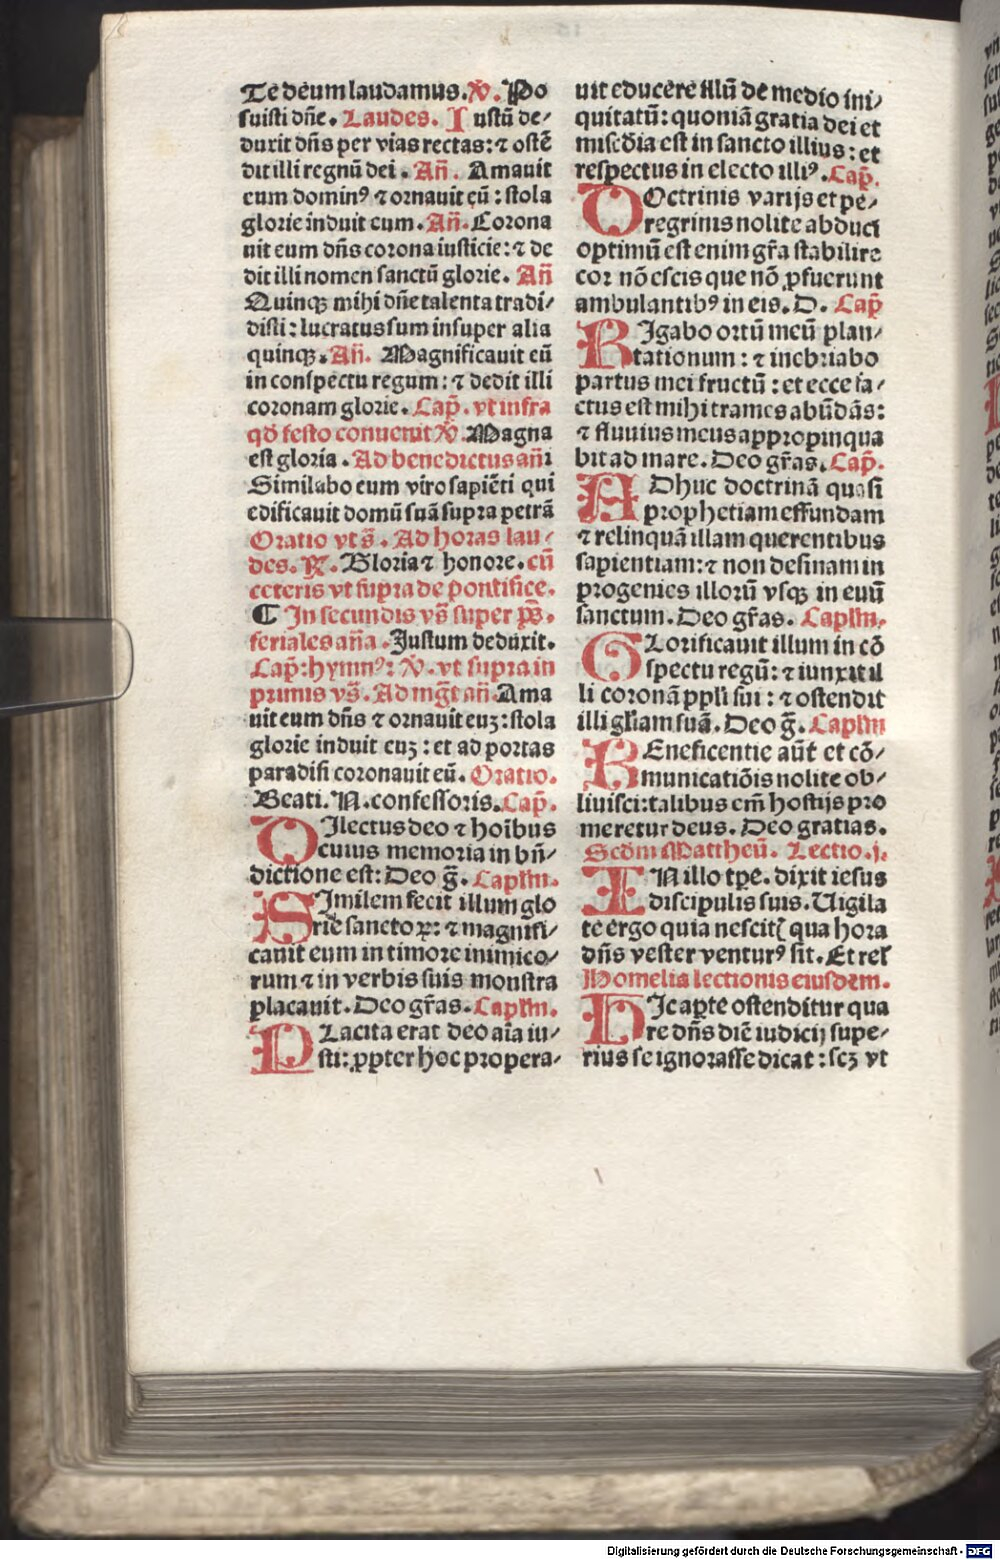 Te deum laudamus. ℣. Po
suisti dn̄e. Laudes. Iustū de⸗
duxit dn̄s per vias rectas: ⁊ ostē
dit illi regnū dei. Añ. Amauit
eum dominꝰ ⁊ ornauit eū: stola
glorie induit eum. Añ. Corona
uit eum dn̄s corona iusticie: ⁊ de
dit illi nomen sanctū glorie. Añ
Quinqꝫ mihi dn̄e talenta tradi⸗
disti: lucratus sum insuper alia
quinqꝫ. Añ. Magnificauit eū
in conspectu regum: ⁊ dedit illi
coronam glorie. Cap̄. vt infra
qd̄ festo conuenit ℣. Magna
est gloria. Ad benedictus añ
Similabo eum viro sapiēti qui
edificauit domū suā supra petrā
Oratio vt s̄. Ad horas lau⸗
des. ℟. Gloria ⁊ honore. cū
ceteris vt supra de pontifice.
¶ In secundis vs̄ super ps̄.
feriales aña. Iustum deduxit.
Cap̄: hymnꝰ: ℣. vt supra in
primis vs̄. Ad mḡt añ. Ama
uit eum dn̄s ⁊ ornauit euꝫ: stola
glorie induit euꝫ: et ad portas
paradisi coronauit eū. Oratio.
Beati. N. confessoris. Cap̄.
DIlectus deo ⁊ hoībus
cuius memoria in bn̄⸗
dictione est: Deo ḡ. Caplm.
SImilem fecit illum glo
rie sanctoꝝ: ⁊ magnifi⸗
cauit eum in timore inimico⸗
rum ⁊ in verbis suis monstra
placauit. Deo gr̄as. Caplm.
PLacita erat deo aīa iu⸗
sti: ꝓpter hoc propera⸗
uit educere illū de medio ini⸗
quitatū: quoniā gratia dei et
misc̄dia est in sancto illius: et
respectus in electo illiꝰ. Cap̄.
DOctrinis varijs et pe⸗
regrinis nolite abduci
optimū est enim gr̄a stabilire
cor nō escis que nō ꝓfuerunt
ambulantibꝰ in eis. D. Cap̄
RIgabo ortū meū plan⸗
tationum: ⁊ inebriabo
partus mei fructū: et ecce fa⸗
ctus est mihi trames abūdās:
⁊ fluuius meus appropinqua
bit ad mare. Deo gr̄as. Cap̄.
ADhuc doctrinā quasi
prophetiam effundam
⁊ relinquā illam querentibus
sapientiam: ⁊ non desinam in
progenies illorū vsqꝫ in euū
sanctum. Deo gr̄as. Caplm.
GLorificauit illum in cō
spectu regū: ⁊ iunxit il
li coronā ppli sui: ⁊ ostendit
illi gliam suā. Deo ḡ. Caplm
BEneficentie aūt et cō⸗
municatiōis nolite ob⸗
liuisci: talibus em̄ hostijs pro
meretur deus. Deo gratias.
Scd̄m Mattheū. Lectio. j.
IN illo tꝑe. dixit iesus
discipulis suis. Uigila
te ergo quia nescitꝭ qua hora
dn̄s vester venturꝰ sit. Et rel̄
Homelia lectionis eiusdem.
HIc aꝑte ostenditur qua
re dn̄s diē iudicij supe⸗
rius se ignorasse dicat: scꝫ vt
Digitalisierung gefördert durch die Deutsche Forschungsgemeinschaft - DFG